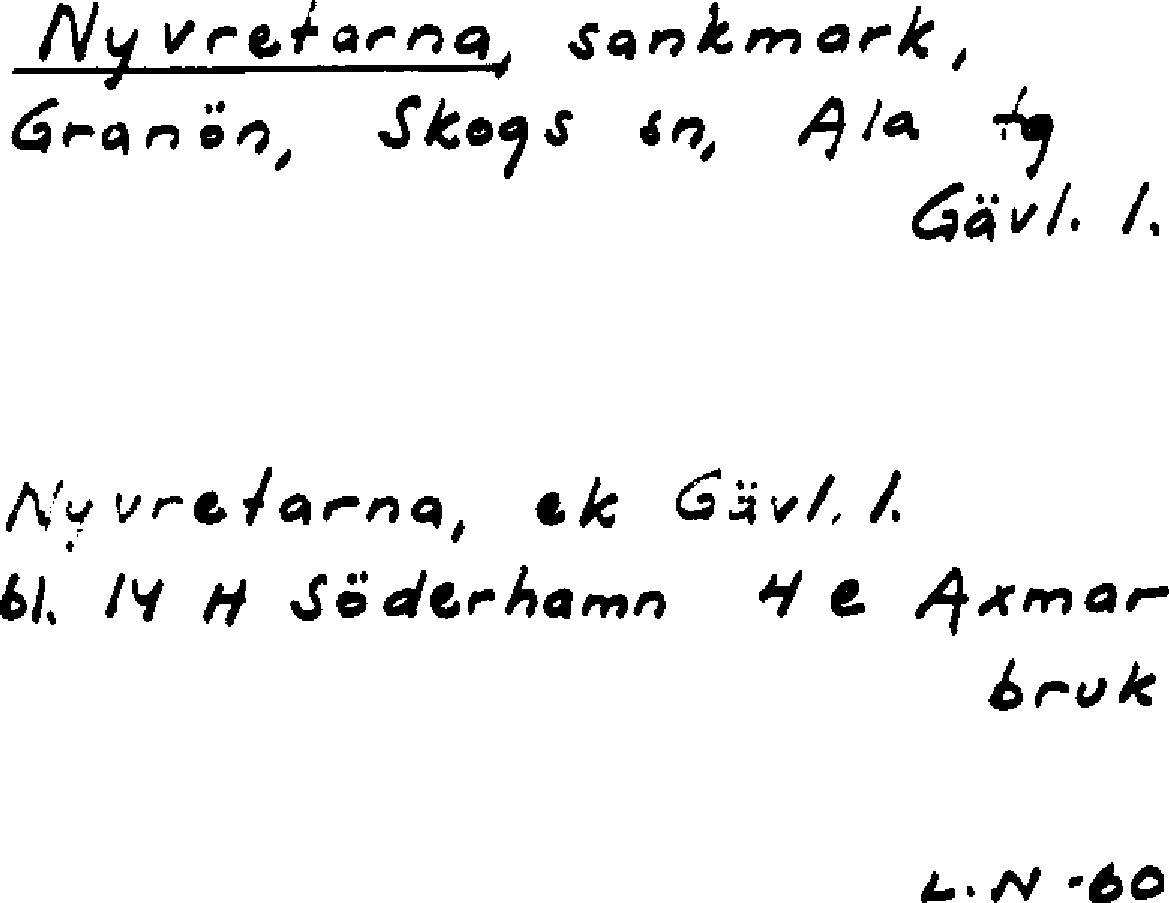 Nyvretarna, sankmark,
Granön, Skogs sn, Ala tg
Gävl. l.
Nyvretarna, ek Gävl. l.
bl. 14 H Söderhamn 4 e Axmar
bruk
L.N -60